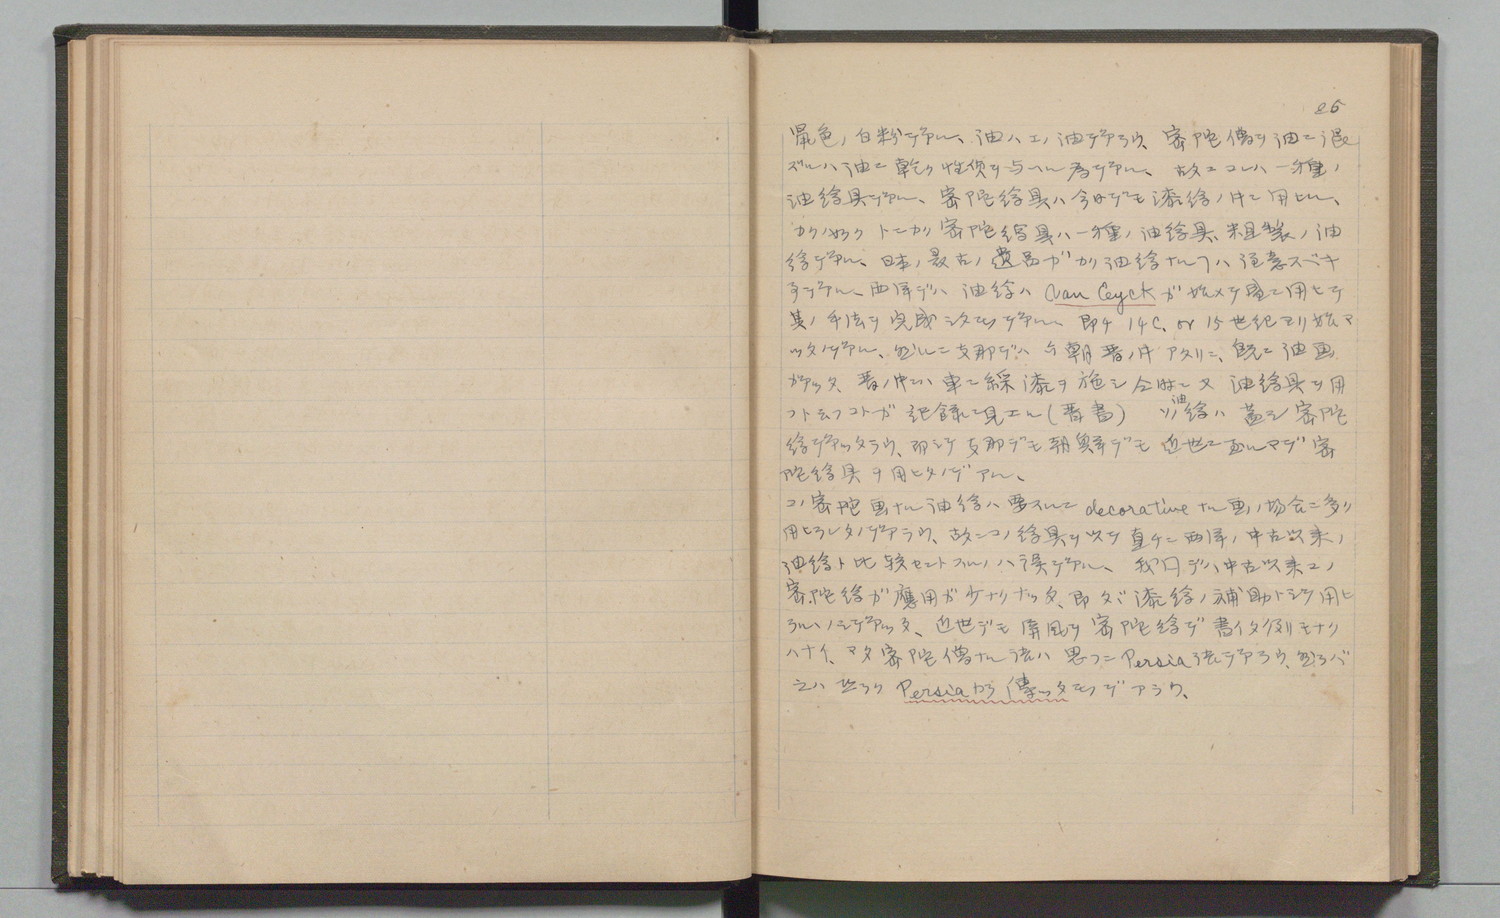 26
色ノ白粉デアル、油ハエノ油デアラウ、密陀僧ヲ油ニ混
ズルハ油ニ乾ク性質ヲ与ヘル為デアル、故ニコレハ一種ノ
油絵具デアル、密陀絵具ハ今日デモ漆絵ノ中ニ用ヒル、
カクノ如ク トニカク密陀絵具ハ一種ノ油絵具、粗製ノ油
絵デアル、日本ノ最古ノ遺品ガカク油絵ナルコトハ注意スベキ
デアル、西洋デハ油絵ハ Van Eyck ガ始メテ盛ニ用ヒテ
其ノ手法ヲ完成シタモノデアル、即チ 14C. or 15世紀ヨリ始マ
ツタノデアル、然ルニ支那デハ六朝晋ノ中アタリニ、既ニ油画
ガアツタ、晋ノ中ニハ車ニ綵漆ヲ施シ 又油絵具ヲ用
フト云フコトガ記録ニ見エル(晋書) ソノ油絵ハ蓋シ密陀
絵デアツタラウ、即シテ支那デモ朝鮮デモ近世ニ至ルマデ密
陀絵具ヲ用ヒタノデアル、
コノ密陀画ナル油絵ハ要スルニ decorative ナル画ノ場合ニ多ク
用ヒラレタノデアラウ、故ニコノ絵具ヲ以テ直チニ西洋ノ中古以来ノ
油絵ト比較セントスルノハ誤デアル、我国デハ中古以来コノ
密陀絵ガ應用ガ少ナクナツタ、即タヾ漆絵ノ補助トシテ用ヒ
ラルヽノミデアツタ、近世デモ屏風ヲ密陀絵デ書イタ例モナク
ハナイ、マタ密陀僧ナル法ハ思フニ Persia 法デアラウ、然ラバ
之ハ恐ラク Persia カラ傳ツタモノデアラウ、